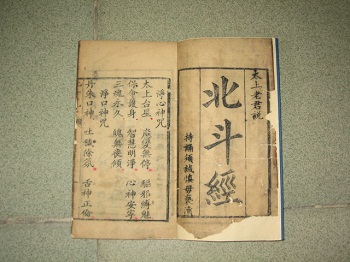 太上老君說
北斗經
持誦須誠慎毋褻
淨心神咒
太上台星 應變無停 驅邪縛魅
保命護身 智慧明淨 心神安寧
三魂永久 魄無喪傾
淨口神咒
丹朱口神 吐穢除氛 舌神正倫